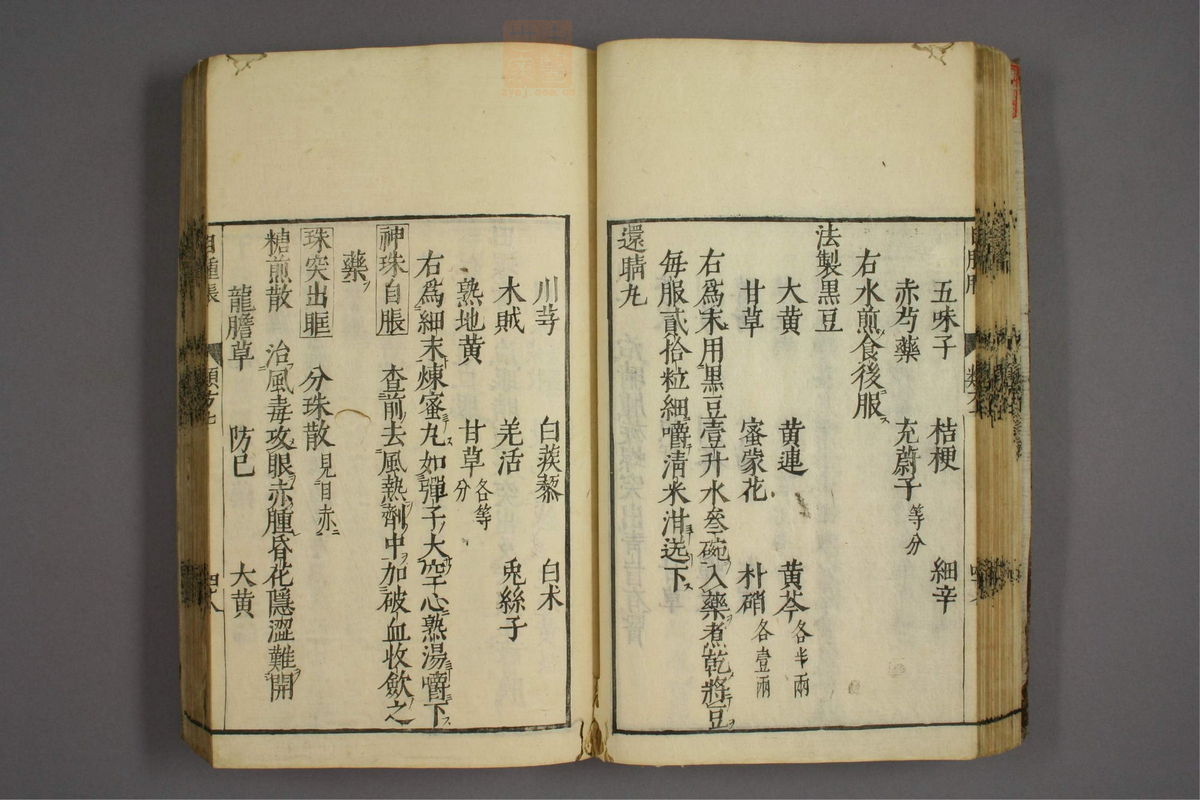 五味子 桔梗 細辛
赤芍藥 充蔚子 等分
右水煎食後服ス
法製黒豆
大黄 黄連 黄芩 各半兩
甘草 蜜蒙花 朴硝 各壹兩
右爲末用黒豆壹升水叄碗入藥煮乾將豆
毎服貳拾粒細嚼清米泔送下
還睛丸
川芎 白蒺藜 白朮
木賊 羌活 兎絲子
熟地黄 甘草 各等分
右爲細末煉蜜丸如彈子大空心熟湯嚼下
神珠自脹 查前去風熱劑中加破血收歛之
藥
珠突出眶 分珠散 見目赤
糖煎散 治風毒攻眼赤腫昏花隱澀難開
龍膽草 防己 大黄
目腫脹